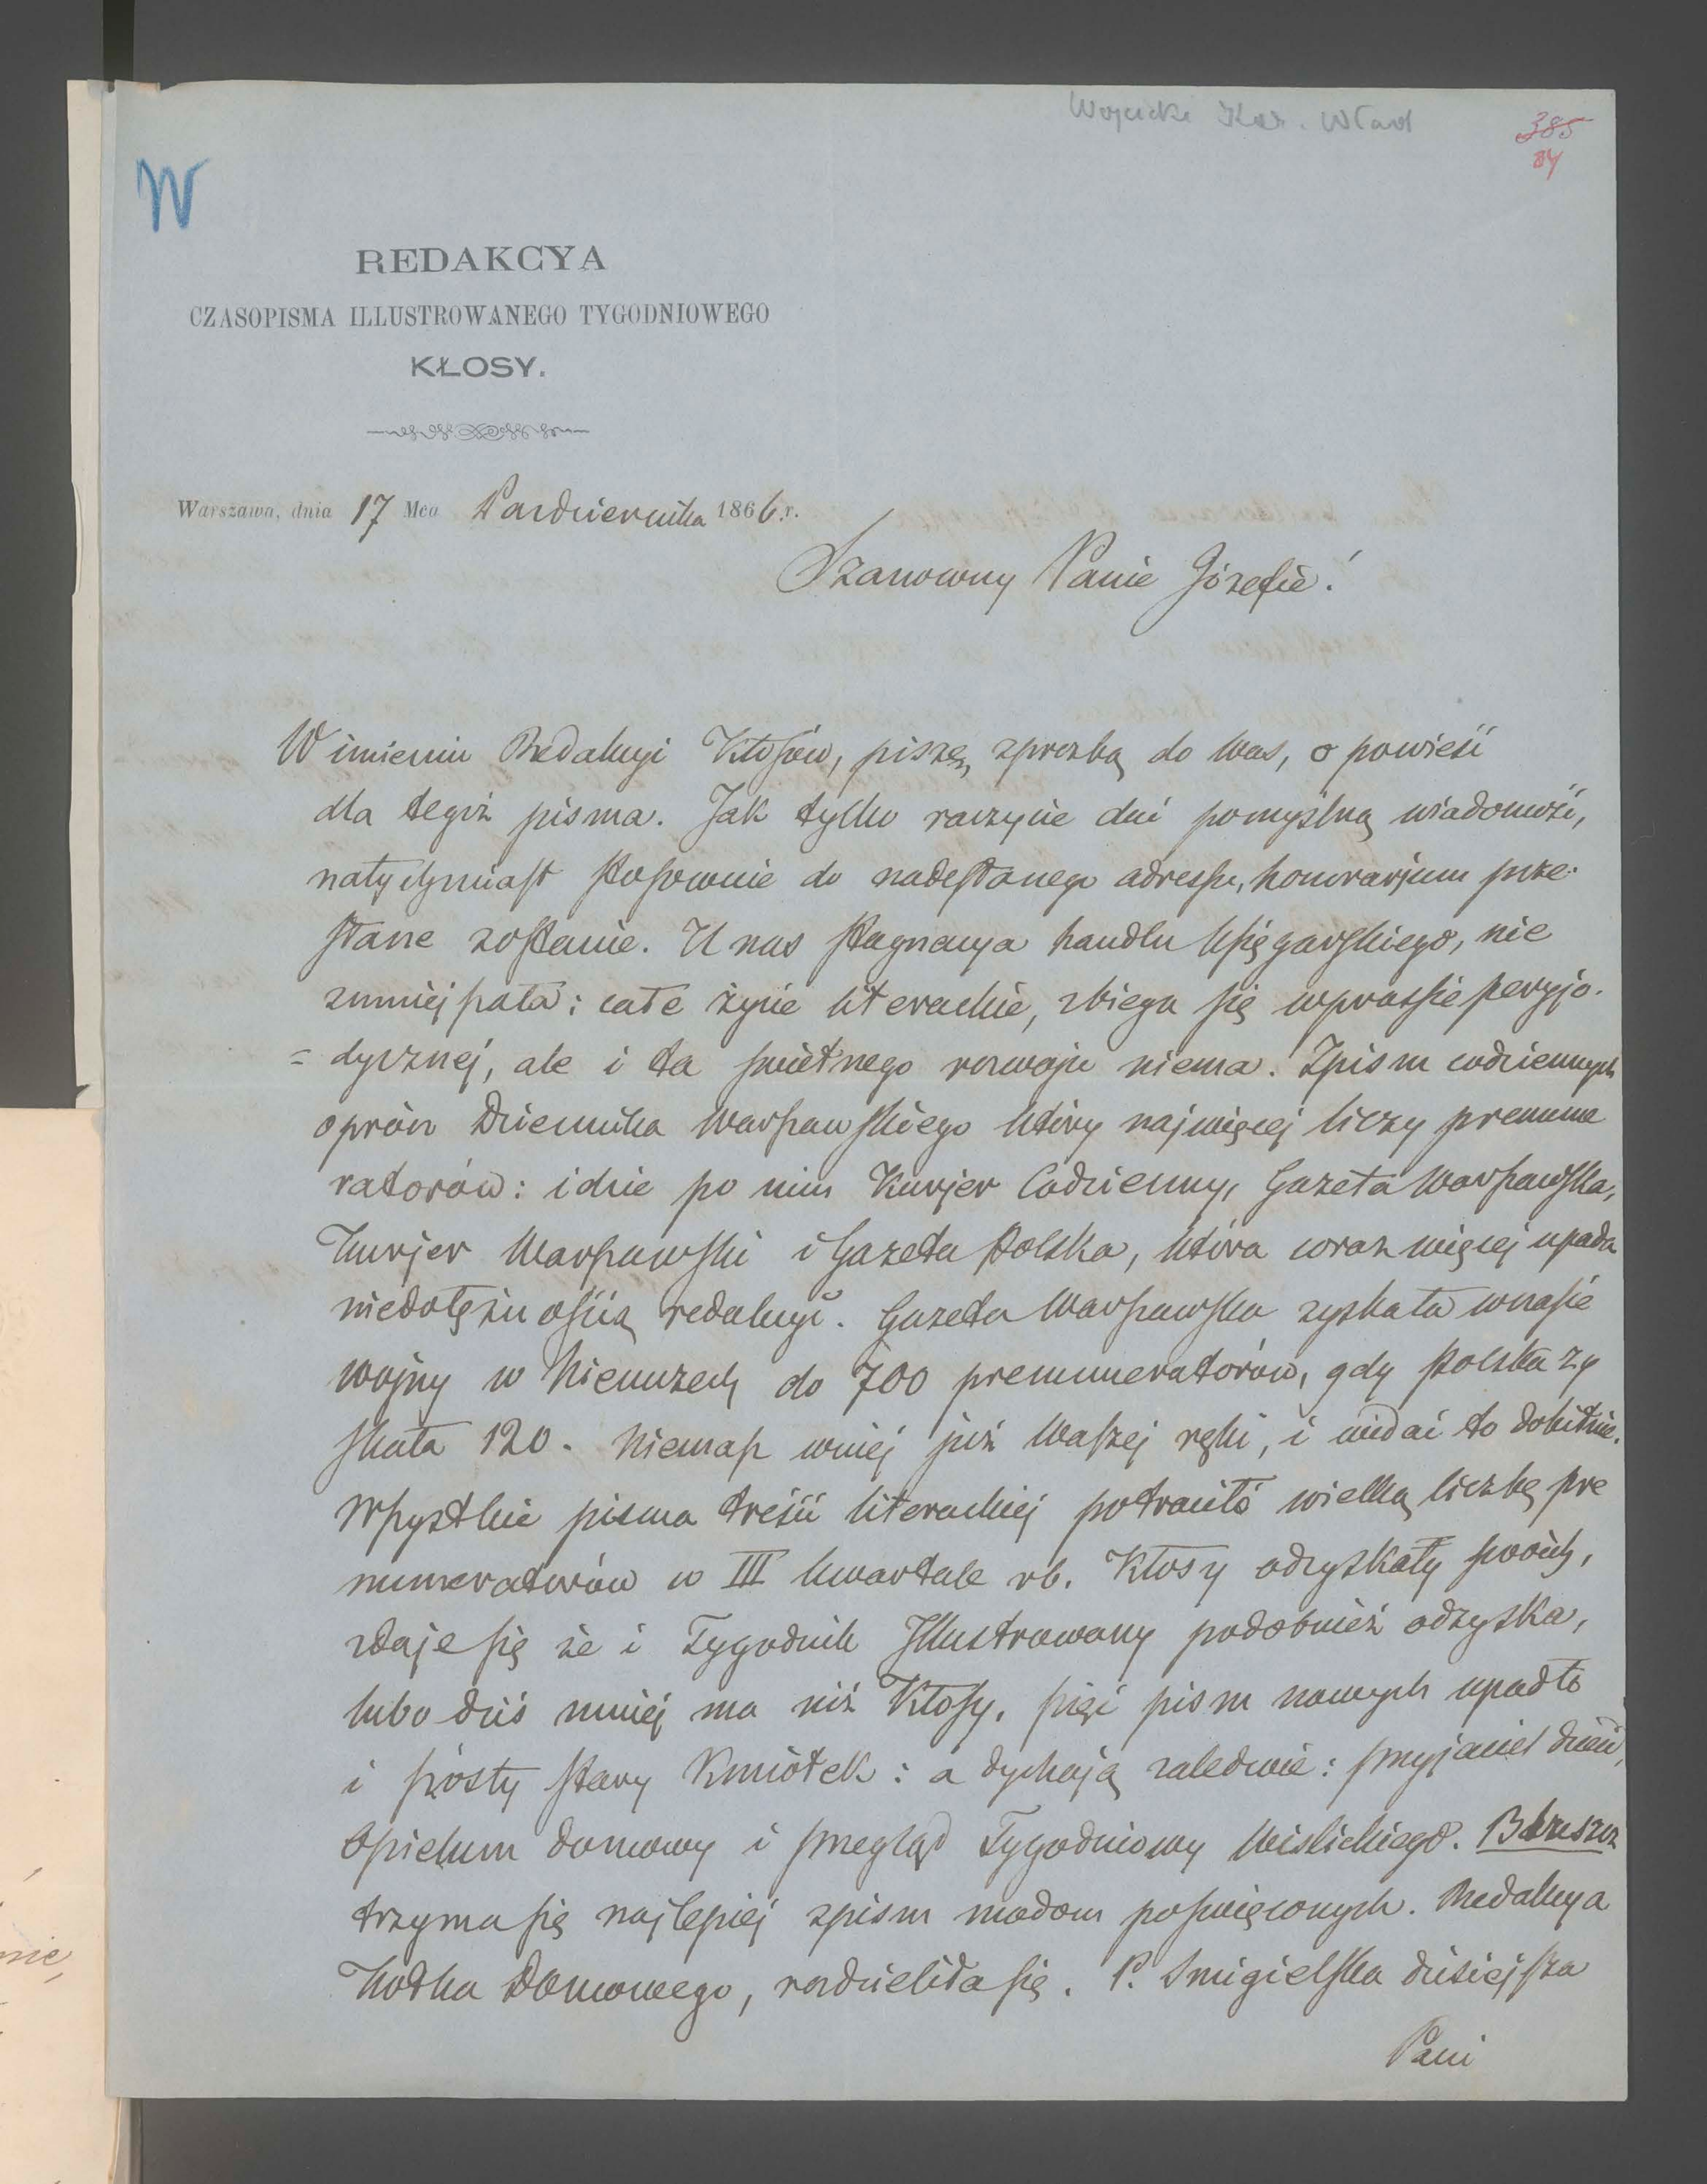 Wojcicki Kaz. Wład
385
84
W
REDAKCYA
CZASOPISMA ILLUSTROWANEGO TYGODNIOWEGO
KŁOSY.
Warszawa, dnia 17 Mca Pazdziernika 1866 r.
Szanowny Panie Józefie!
W imieniu Redakcyi Kłosów, piszę, zprozbą do Was, o powieść
dla tegoż pisma. Jak tylko raczycie dać pomyślną wiadomość,
natychmiast stosownie do nadesłanego adressu, honorarjum prze-
słane zostanie. U nas stagnacya handlu księgarskiego, nie
zmniejszała: całe życie literackie, zbiega się wprassie peryjo-
= dycznej, ale i ta świetnego rozwoju niema. Zpism codziennych
oprócz Dziennika Warszawskiego który najwięcej liczy prenume
ratorów: idzie po nim Kurjer Codzienny, Gazeta Warszawska,
Kurjer Warszawski i Gazeta Polska, która coraz więcej upada
niedołężnością redakcyi. Gazeta Warszawska zyskała wczasie
wojny w Niemczech do 700 prenumeratorów, gdy Polska zy
skała 120. Niemasz wniej już Waszej ręki, i widać to dobitnie.
Wszystkie pisma treści literackiej potraciło wielką liczbę pre
numeratorów w III kwartale rb. Kłosy odzyskały swoich,
zdaje się że i Tygodnik Illustrowany podobnież odzyska,
lubo dziś mniej ma niż Kłosy. pięć pism nowych upadło
i szósty stary Kmiotek: a dychają zaledwie: przyjaciel dzieci,
Opiekun domowy i przegląd Tygodniowy Wislickiego. Bluszcz
trzyma się najlepiej zpism modom poswięconych. Redakcya
Kółka Domowego, rozdzieliła się. P. Smigielska dzisiejsza
Pani